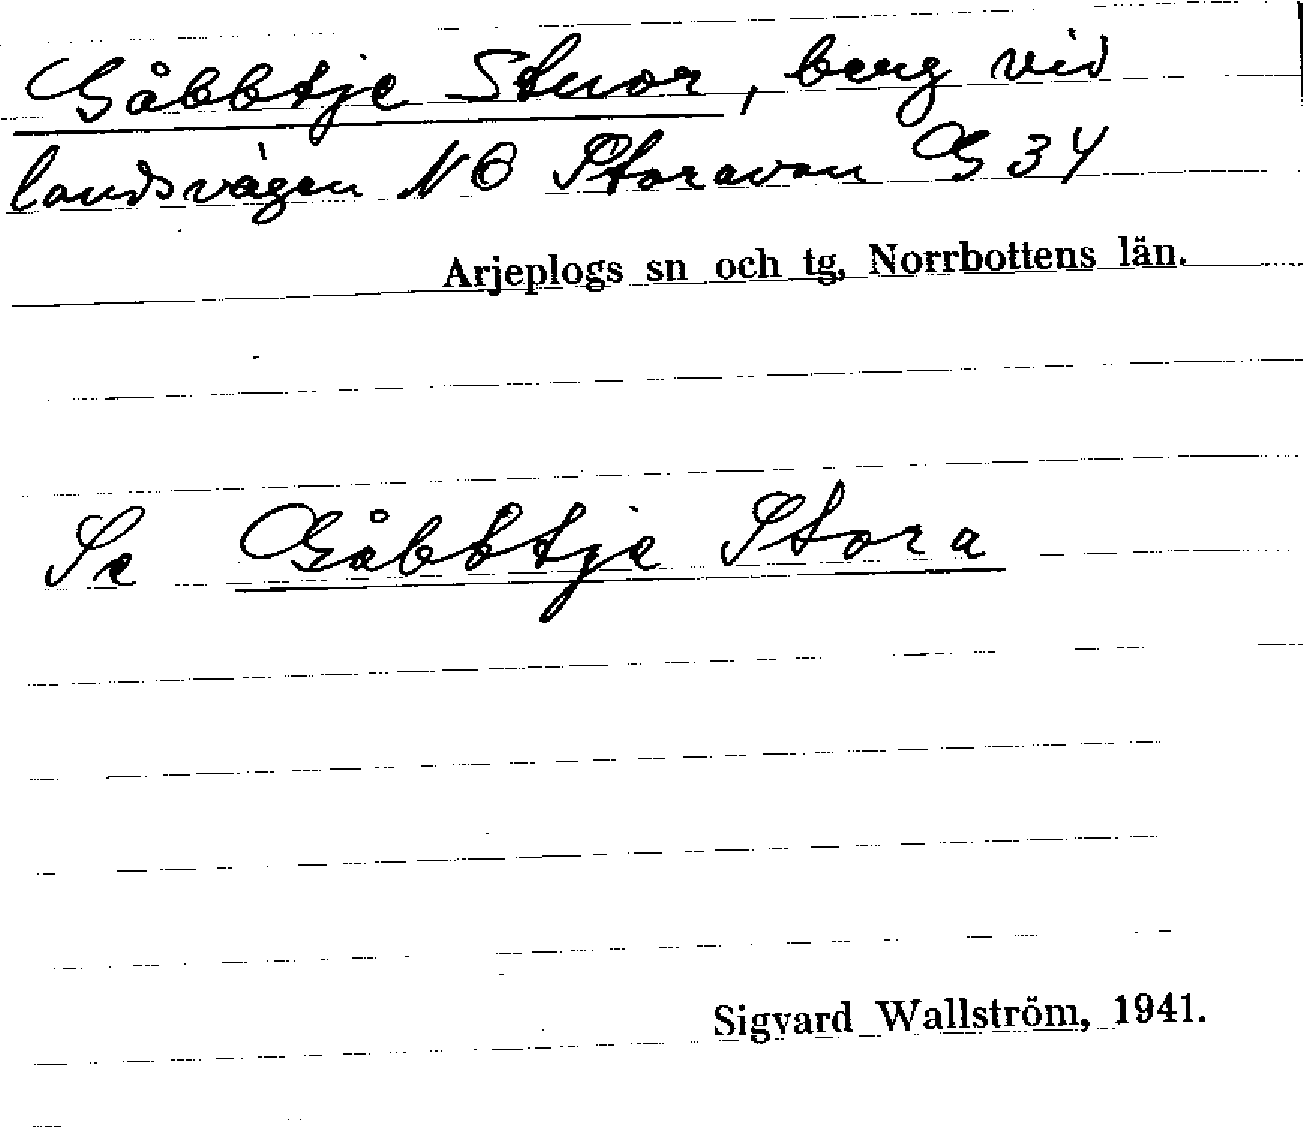 Gåbbtje Stuor, berg vid
landsvägen NO Storavan G 34
Arjeplogs sn och tg, Norrbottens län.
Se Gåbbtje Stora
Sigvard Wallström, 1941.